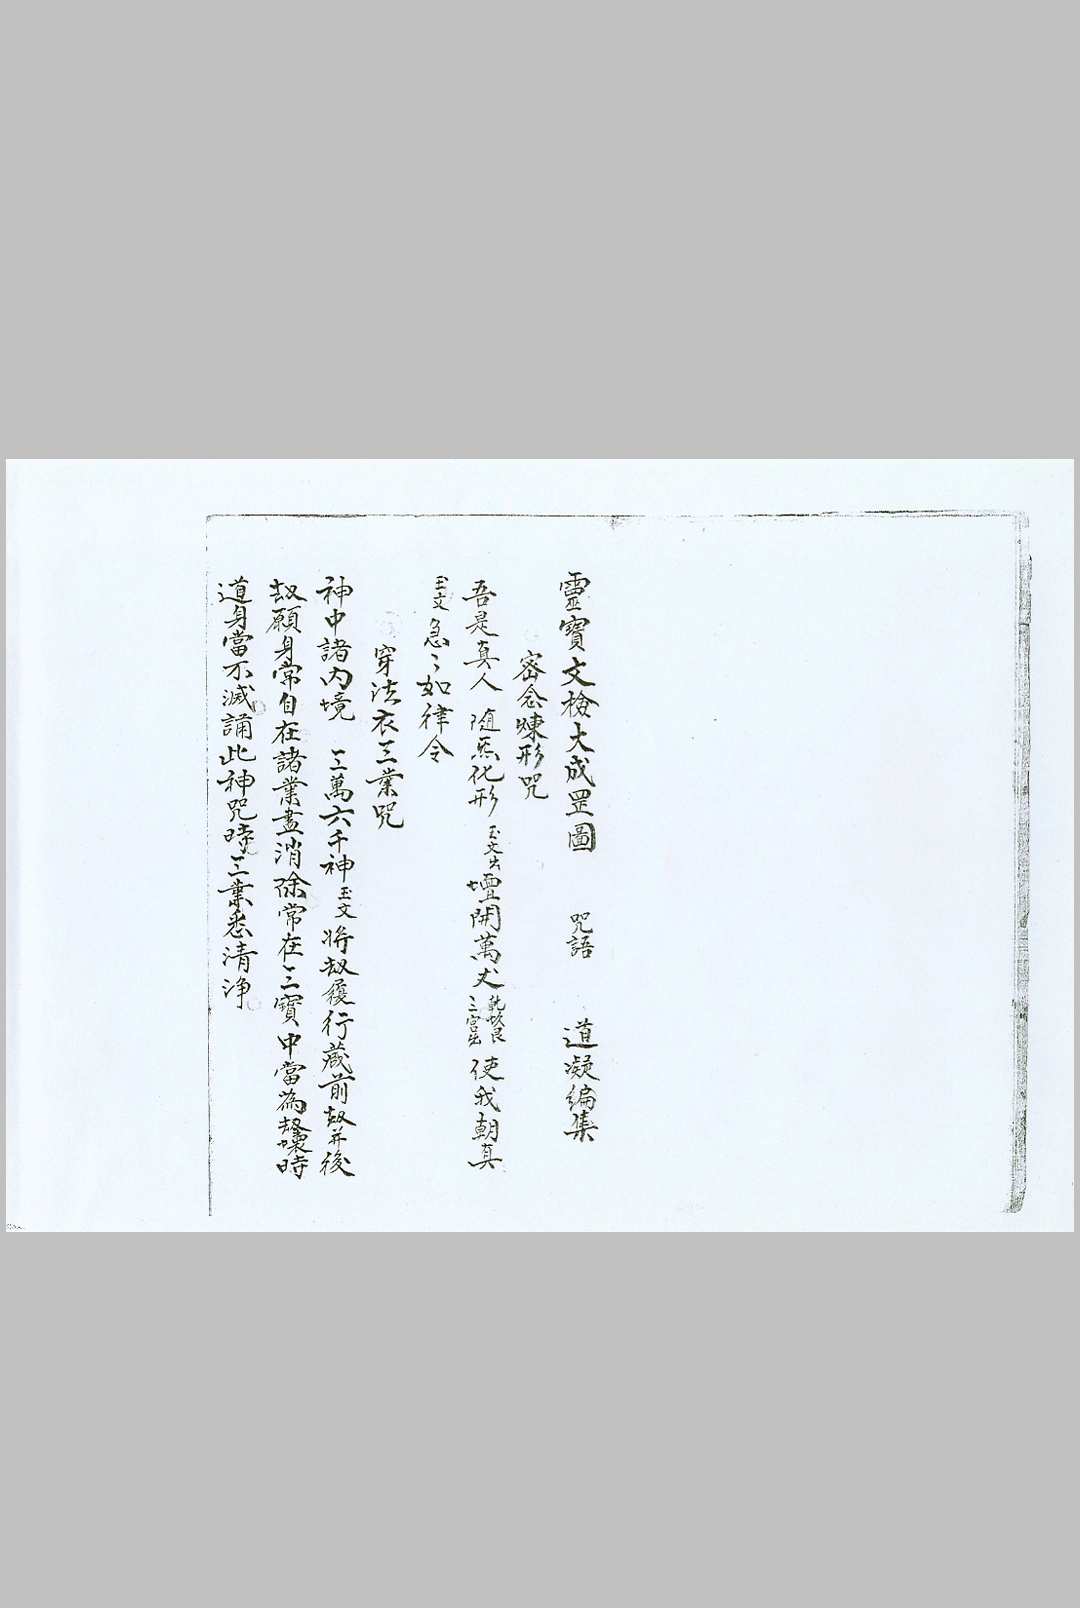 靈寶文檢大成罡圖 咒語 道凝編集
密念煉形咒
吾是真人 隨炁化形 玉文出 壇開萬丈 乾坎艮三宮出 使我朝真
玉文 急々如律令
穿法衣三業咒
神中諸內境 三萬六千神 玉文 將劫履行藏前劫并後
劫願身常自在諸業盡消除常在三寶中當為劫壞時
道身當不滅誦此神咒時三業悉清淨